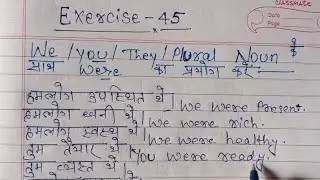 Exercise-45
CLASSMATE
Date
Page
We / You / They / Plural Noun
साथ Were का प्रयोग करें
हमलोग उपस्थित थे। We were Present.
हमलोग धनी थे। We were rich.
हमलोग स्वस्थ थे। We were healthy.
तुम तैयार थे। You were ready.
तुम व्यस्त थे।